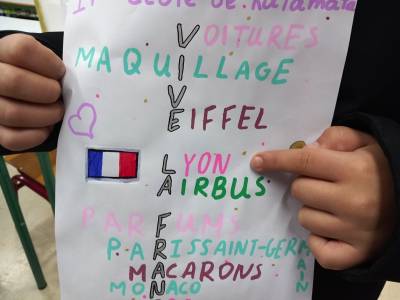 Ecole de Kalamata
VOITURES
MAQUILLAGE
V
EIFFEL
LYON
AIRBUS
PARFUMS
PARISSAINT-GERMAIN
MACARONS
MONACO